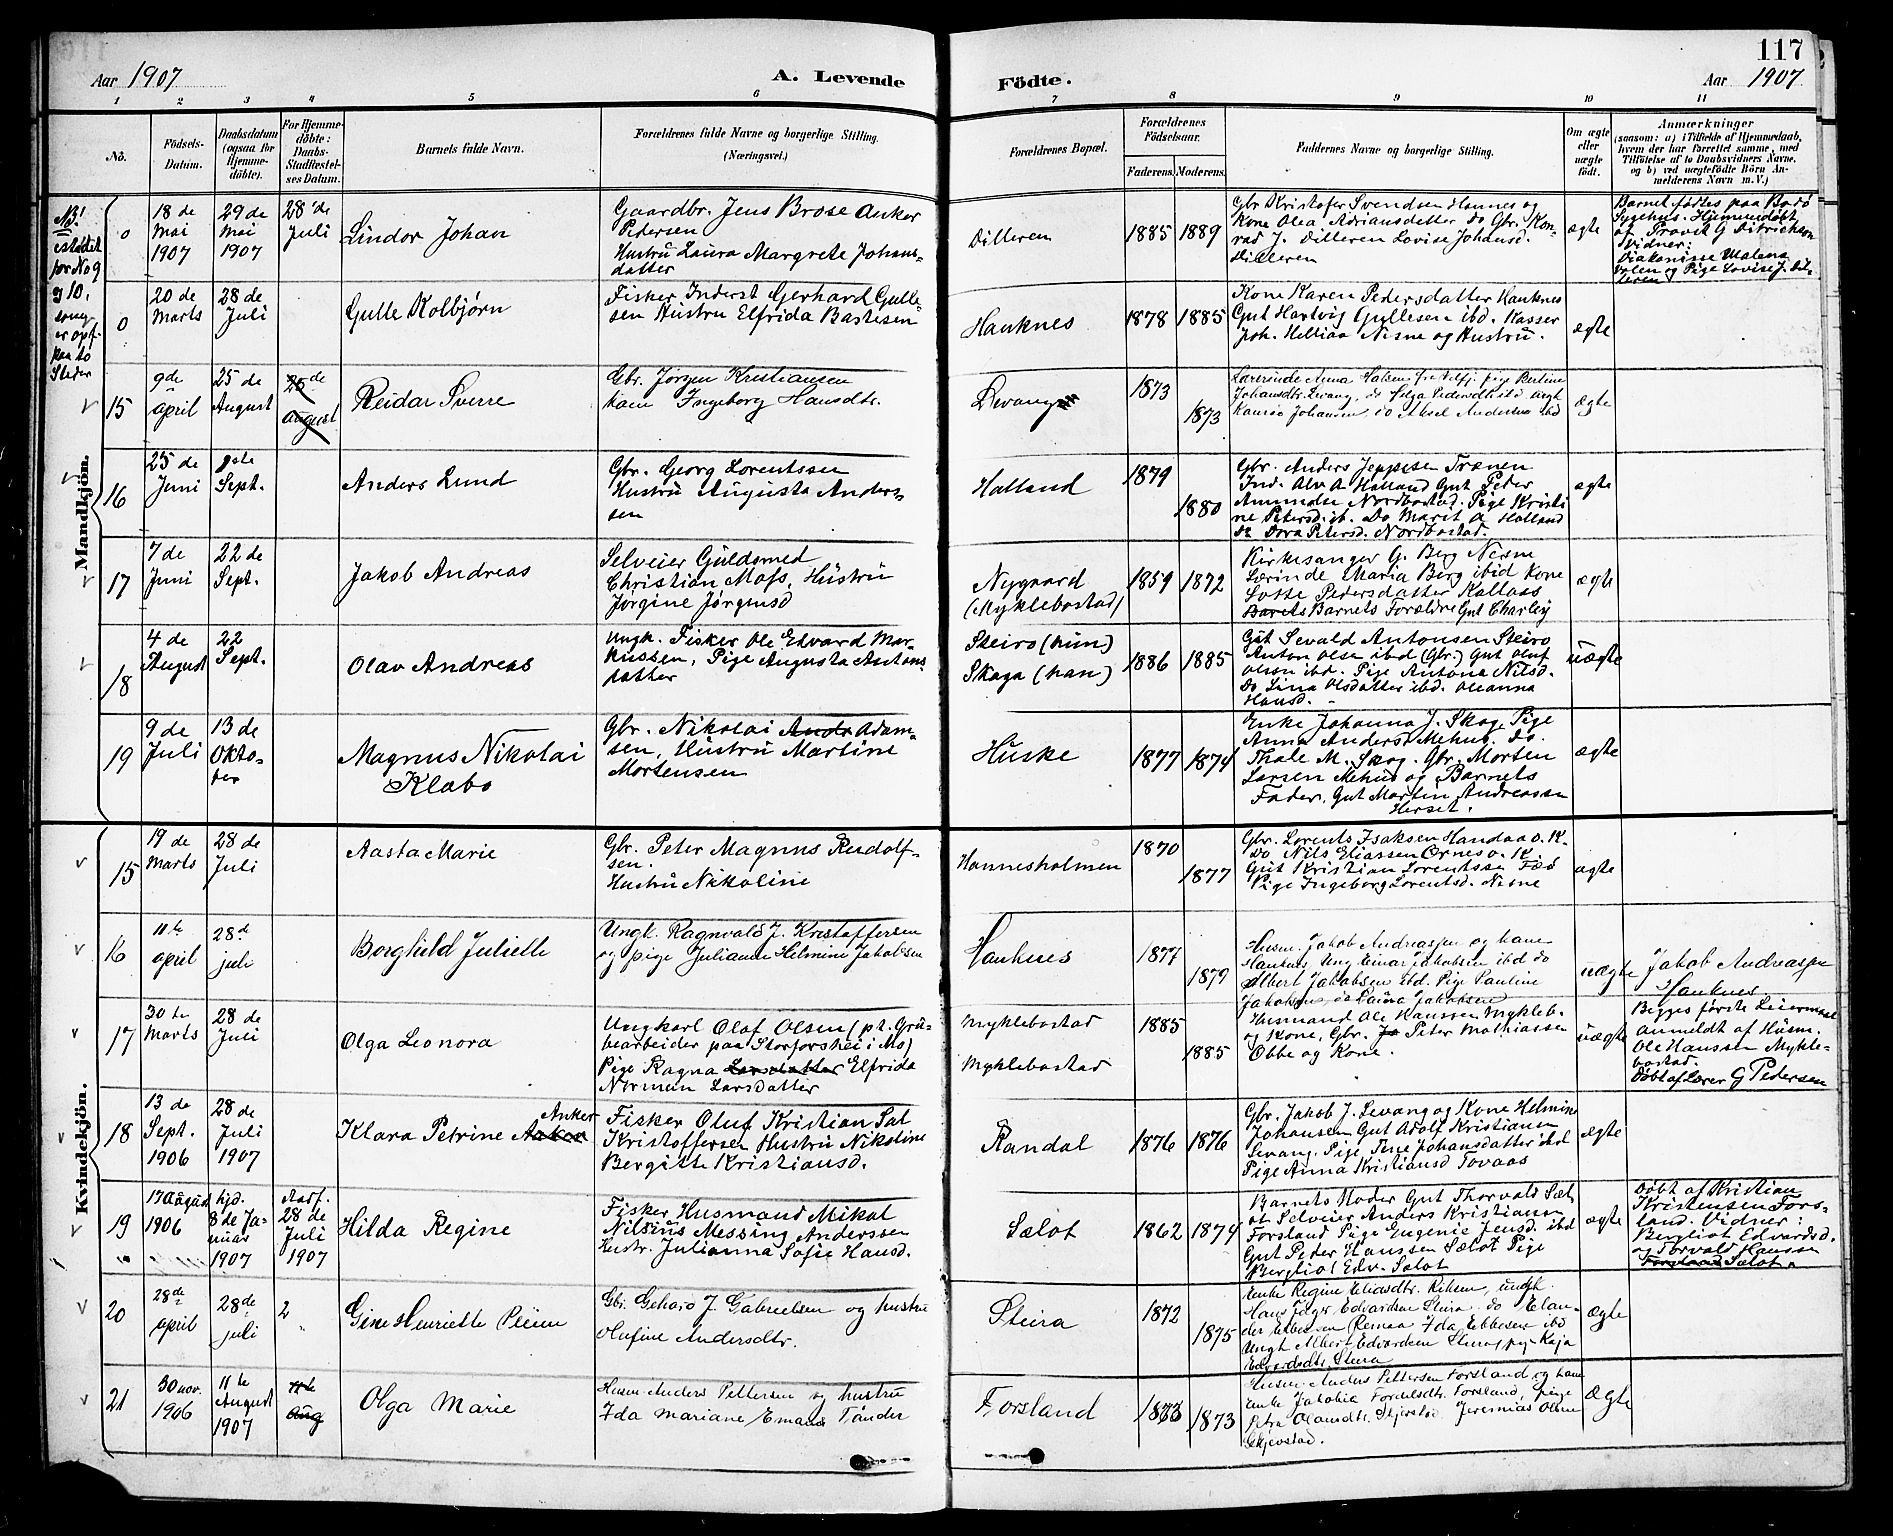 117
Aar 1907
A. Levende
Födte.
Aar 1907
1 2 3 4 5 6 7 8 9 10 11
No.
Födsels-
Datum.
Daabsdatum
(ogsaa for
Hjemme-
döbte).
For Hjemme-
döbte:
Daabs-
Stadfæstel-
ses Datum.
Barnets fulde Navn.
Forældrenes fulde Navne og borgerlige Stilling.
(Næringsvei.)
Forældrenes Bopæl.
Forældrenes
Födselsaar.
Faderens. Moderens.
Faddernes Navne og borgerlige Stilling.
Om ægte
eller
uægte
födt.
Anmærkninger
(saasom: a) i Tilfælde af Hjemmedaab,
hvem der har forrettet samme, med
Tilföielse af to Daabsvidners Navne,
og b) ved uægtefödte Börn An-
melderens Navn m. V.)
NB!
istedet
for No 9
g 10,
som
er opf.
paa to
Steder
Mandkjön.
0
18 de
Mai
1907
29 de
Mai
1907
28 de
Juli
Lindor Johan
Gaardbr. Jens Brose Anker
Pedersen
Hustru Laura Margrete Johans-
datter
Dilleren
1885 1889
Gbr Kristofer Svendsen Hannes og
Kone Olea Adriansdatter do Gbr. Kon-
rad J. Dilleren Lovise Johansd.
Dilleren
ægte
Barnet födtes paa Bodö
Sygehus. Hjemmedöbt
af Provst G Ditrichson
Vidner:
Diakonisse Malena
og Pige Lovise J. Dil-
leren
0
20 de
Marts
28 de
Juli
Gulle Kolbjørn
Fisker Inderst Gerhard Gulle-
sen Hustru Elfrida Bastesen
Hauknes
1878 1885
Kone Karen Pedersdatter Hauknes
Gut Hartvig Gullesen ibd. Kasser
Joh. Nesne og Hustru.
ægte
15
9de
april
25 de
August
25 de
August
Reidar Sverre
Gbr. Jørgen Kristiansen
kone Ingeborg Hansdtr.
Levang
1873
1873
Lærerinde Anna pige Bertine
Johansdtr. Levang, do Helga Pedersdtr
Johansen, do Aksel Andersen ibd
ægte
16
25 de
Juni
Sept.
Anders Lund
Gbr. Georg Lorentssen
Hustru Augusta Anders-
sen
Halland
1879
1880
Gbr. Anders Jeppesen Trænen
Ind. Alv A Halland Gut Peder
Amundsen Nordbostad. Pige Kristi
ne Petersd. ib. Do Marit A Holland
Do Dora Petersd. Nordbostad.
ægte
17
7 de
Juni
22 de
Sept.
Jakob Andreas
Selveier Guldsmed
Christian Mass, Hustru
Jørgine Jørgensd
Nygaard
(Myklebostad)
1859 1872
Kirkesanger G. Berg Nesne
Lærinde Maria Berg ibid Kone
Lotte Pedersdatter Kallaas
Barets Barnets Forældre Gut Charley
ægte
18
4 de
August
22
Sept.
Olav Andreas
Ungk. Fisker Ole Edvard Mar-
kussen, Pige Augusta Antons
datter
Steiro (hun)
Skaga (han)
1886 1885
Gut Sevald Antonsen Steiro
Anton Olsen ibd (Gbr.) Gut Oluf
Olsen ibd. Pige Antona Nilsd.
Do Lina Olsdatter ibd. Oleanna
Hansd.
uægte
19
9 de
Juli
13 de
Okto-
ber
Magnus Nikolai
Klabo
Gbr. Nikolai Andr Adam-
sen, Hustru Martine
Mortensen
Huske
1877 1874
Enke Johanna J. Skog Pige
Anna Anders Mehus. do.
Thale M. Skog. Gbr. Morten
Larsen Mehus og Barnets
Fader. Gut Martin Andreassen
Herset.
ægte
Kvindekjön.
15
19 de
Marts
28 de
Juli
Aasta Marie
Gbr. Peter Magnus Rudolf-
sen.
Hustru Nikoline
Hannesholmen
1870
1877
Gbr. Lorents Isaksen Handaa o. K.
Do Nils Eliassen Ørnes o. K.
Gut Kristian Lorentssen
Pige Ingeborg Lorentsd. Nesne
ægte
16
11te
april
28de
juli
Borghild Julielle
Ungk. Ragnvald J. Kristoffersen
og pige Julianne Helmine Jakobsen
Hauknes
1877
1879
Husm. Jakob Andreassen og kone
Hauknes, Ung. Einar Jakobsen ibd do
Albert Jakobsen ibd. Pige Pauline
Jakobsen, do Laura Jakobsen
uægte
Jakob Andreassen
Hauknes
17
30 te
Marts
28 de
Juli
Olga Leonora
Ungkarl Olaf Olsen (pt. Gru-
bearbeider paa Storforshei i Mo)
Pige Ragna Larsdatter Elfrida
Norman Larsdatter
Myklebostad
Myklebostad
1885
1885
Husmand Ole Hanssen Mykleb.
og Kone, Gbr. Jo Peter Mathiassen
Obbe og Kone.
uægte
Begges første Leiermaal
anmeldt af Husm.
Ole Hanssen Mykle-
bostad.
Döbt af Lærer G Pedersen
18
13 de
Sept.
1906
28 de
Juli
1907
Klara Petrine Anker
Anker
Fisker Oluf Kristian Sal
Kristoffersen Hustru Nikoline
Bergitte Kristiansd.
Randal
1876 1876
Gbr. Jakob J. Levang og Kone Helmine
Johansen Gut Adolf Kristiansen
Levang. Pige Tine Johansdatter ibd
Pige Anna Kristiansd Tovaas
ægte
19
17 August
1906
hjd.
8 de Ja-
nuar
1907
Stadf.
28 de
Juli
1907
Hilda Regine
Fisker Husmand Mikal
Nilsius Messing Anderssen
Hustr. Julianna Sofie Hansd.
Sæløt
1862 1874
Barnets Moder Gut Thorvald Sæl-
øt Selveier Anders Kristiansen
Forsland Pige Eugenie Jensd. ibd
Gut Peder Hanssen Sæløt Pige
Bergliot Edv. Sæløt
ægte
Döbt af Kristian
Kristensen Fors-
land. Vidner:
Bergliot Edvardsd.
og Torvald Hanssen
Forsland Sæløt.
20
28de
april
28de
juli
2
Gine Henriette Pleim
Gbr. Gehard J. Gabrielsen og hustru
Olufine Andersdtr.
Steira
1872
1875
Enke Regine Eliasdtr. ungk.
Hans Edvardsen Steira. do Elan-
der Ebbesen Remaa Ida Ebbesen ibd
Ungk Albert Edvardsen Steira, pige Kaja
Edvardsdtr. Steira
ægte
21
30 nov.
1906
11 te
August
1907
11te
Aug
Olga Marie
Husm. Anders Pettersen og hustru
Ida Mariane Tønder
Forsland
1873
1873
Husm. Anders Pettersen Forsland og kone
Enke Jakobia Forsland, pige
Petra Olausdtr. Skjevstad, Jeremias Olsen
Skjevstad.
Ægte